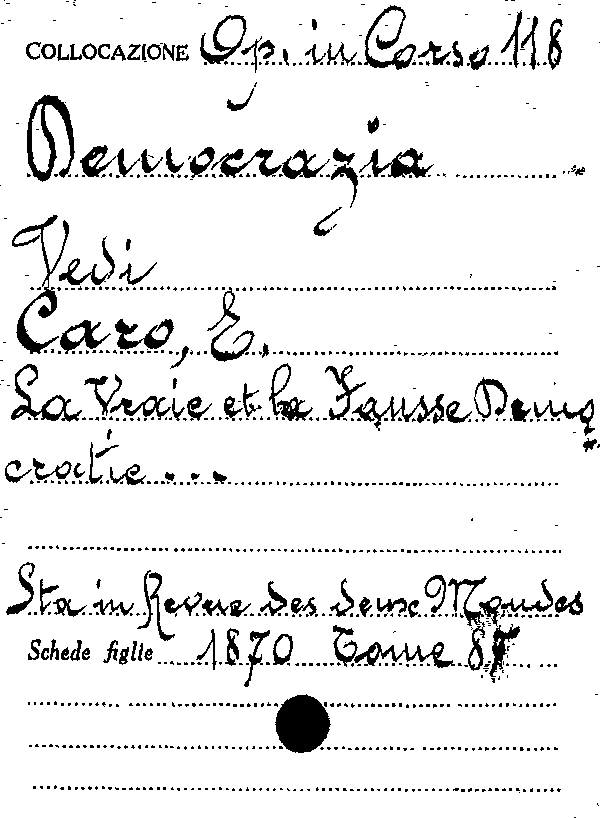 COLLOCAZIONE Op. in Corso 118
Democrazia
Vedi
Caro, E.
La Vraie et la Fausse Demo
cratie ...
Sta in Revue des deux Mondes
Schede figlie 1870 Tome 87